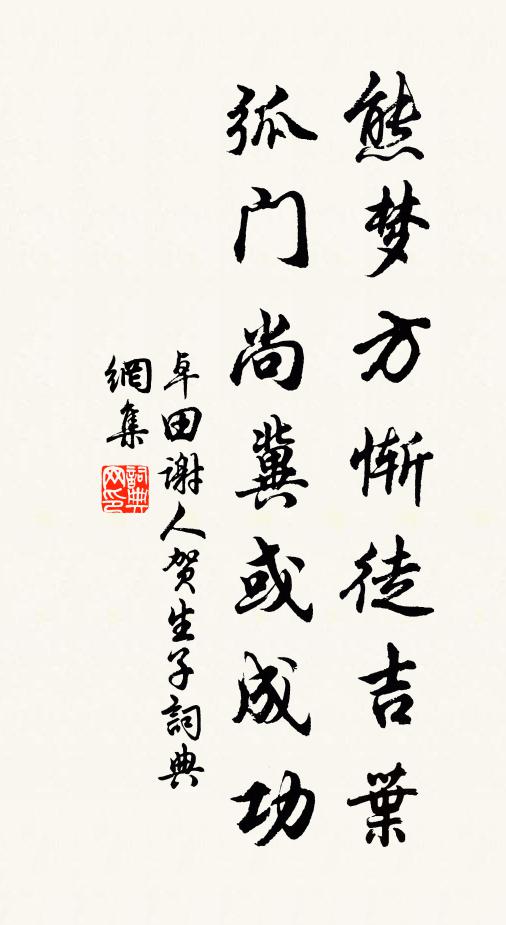 熊梦方惭徒吉葉
弧门尚冀或成功
卓田谢人贺生子詞典
網集
詞典網印